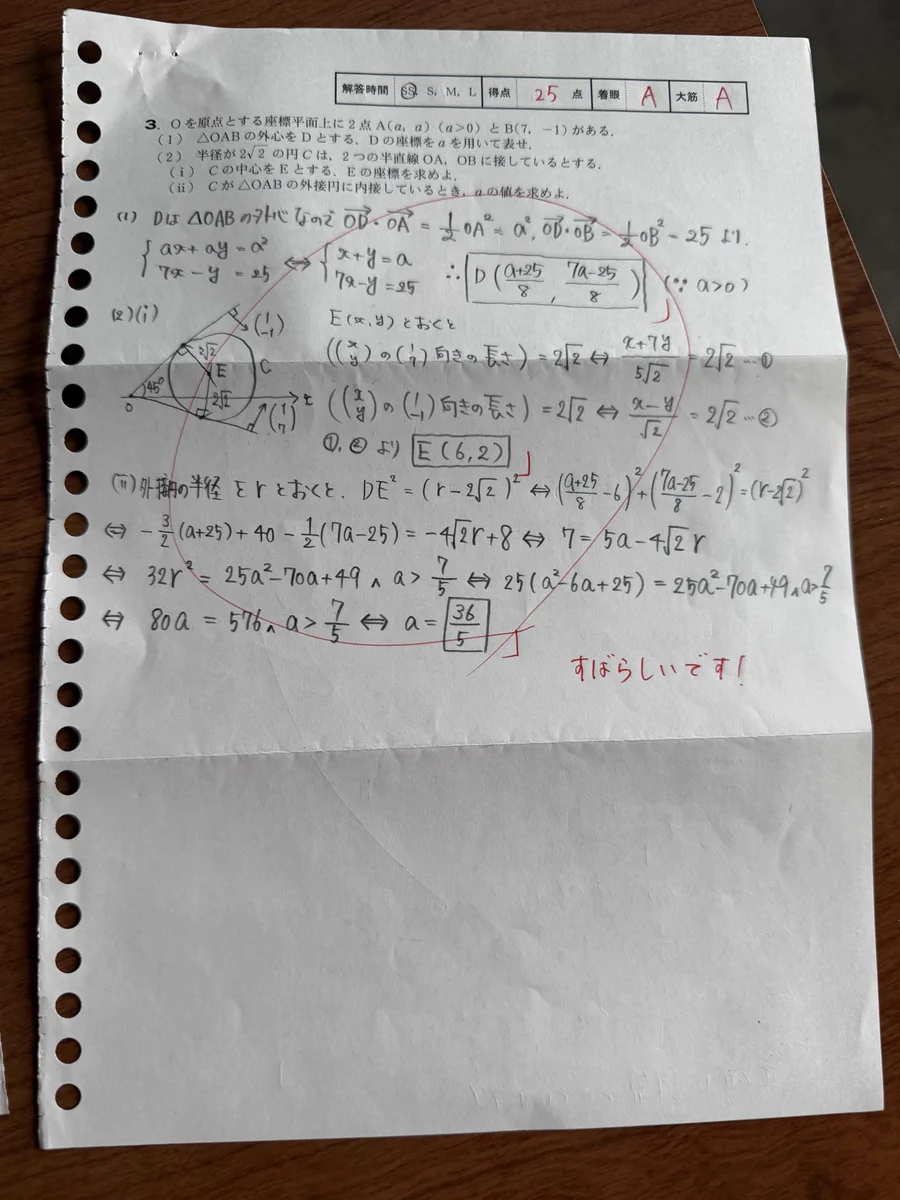 解答時間 SS, S, M, L 得点 25 点 着眼 A 大筋 A
3. Oを原点とする座標平面上に2点A(a, a) (a>0) とB(7, −1)がある.
(1) △OABの外心をDとする. Dの座標をaを用いて表せ.
(2) 半径が2√2の円Cは, 2つの半直線OA, OBに接しているとする.
(i) Cの中心をEとする. Eの座標を求めよ.
(ii) Cが△OABの外接円に内接しているとき, aの値を求めよ.
(1) Dは△OABの外心なので OD→・OA→ = 1/2 OA² = a², OD→・OB→ = 1/2 OB² = 25 より.
{ax+ay=a² 7x−y=25 ⇔ {x+y=a 7x−y=25 ∴ D((a+25)/8, (7a−25)/8) (∵ a>0)
(2)(i) E(x,y)とおくと
((x y)の(1 7)向きの長さ) = 2√2 ⇔ (x+7y)/(5√2) = 2√2 …①
((x y)の(1 −1)向きの長さ) = 2√2 ⇔ (x−y)/√2 = 2√2 …②
①,②より E(6,2)
O 45° 2√2 E 2√2 C x (1 −1) (1 7)
(ii) 外接円の半径をrとおくと, DE² = (r−2√2)² ⇔ ((a+25)/8 −6)² + ((7a−25)/8 −2)² = (r−2√2)²
⇔ −3/2(a+25)+40−1/2(7a−25) = −4√2r+8 ⇔ 7 = 5a−4√2r
⇔ 32r² = 25a²−70a+49 ∧ a>7/5 ⇔ 25(a²−6a+25) = 25a²−70a+49 ∧ a>7/5
⇔ 80a = 576 ∧ a>7/5 ⇔ a = 36/5
すばらしいです!